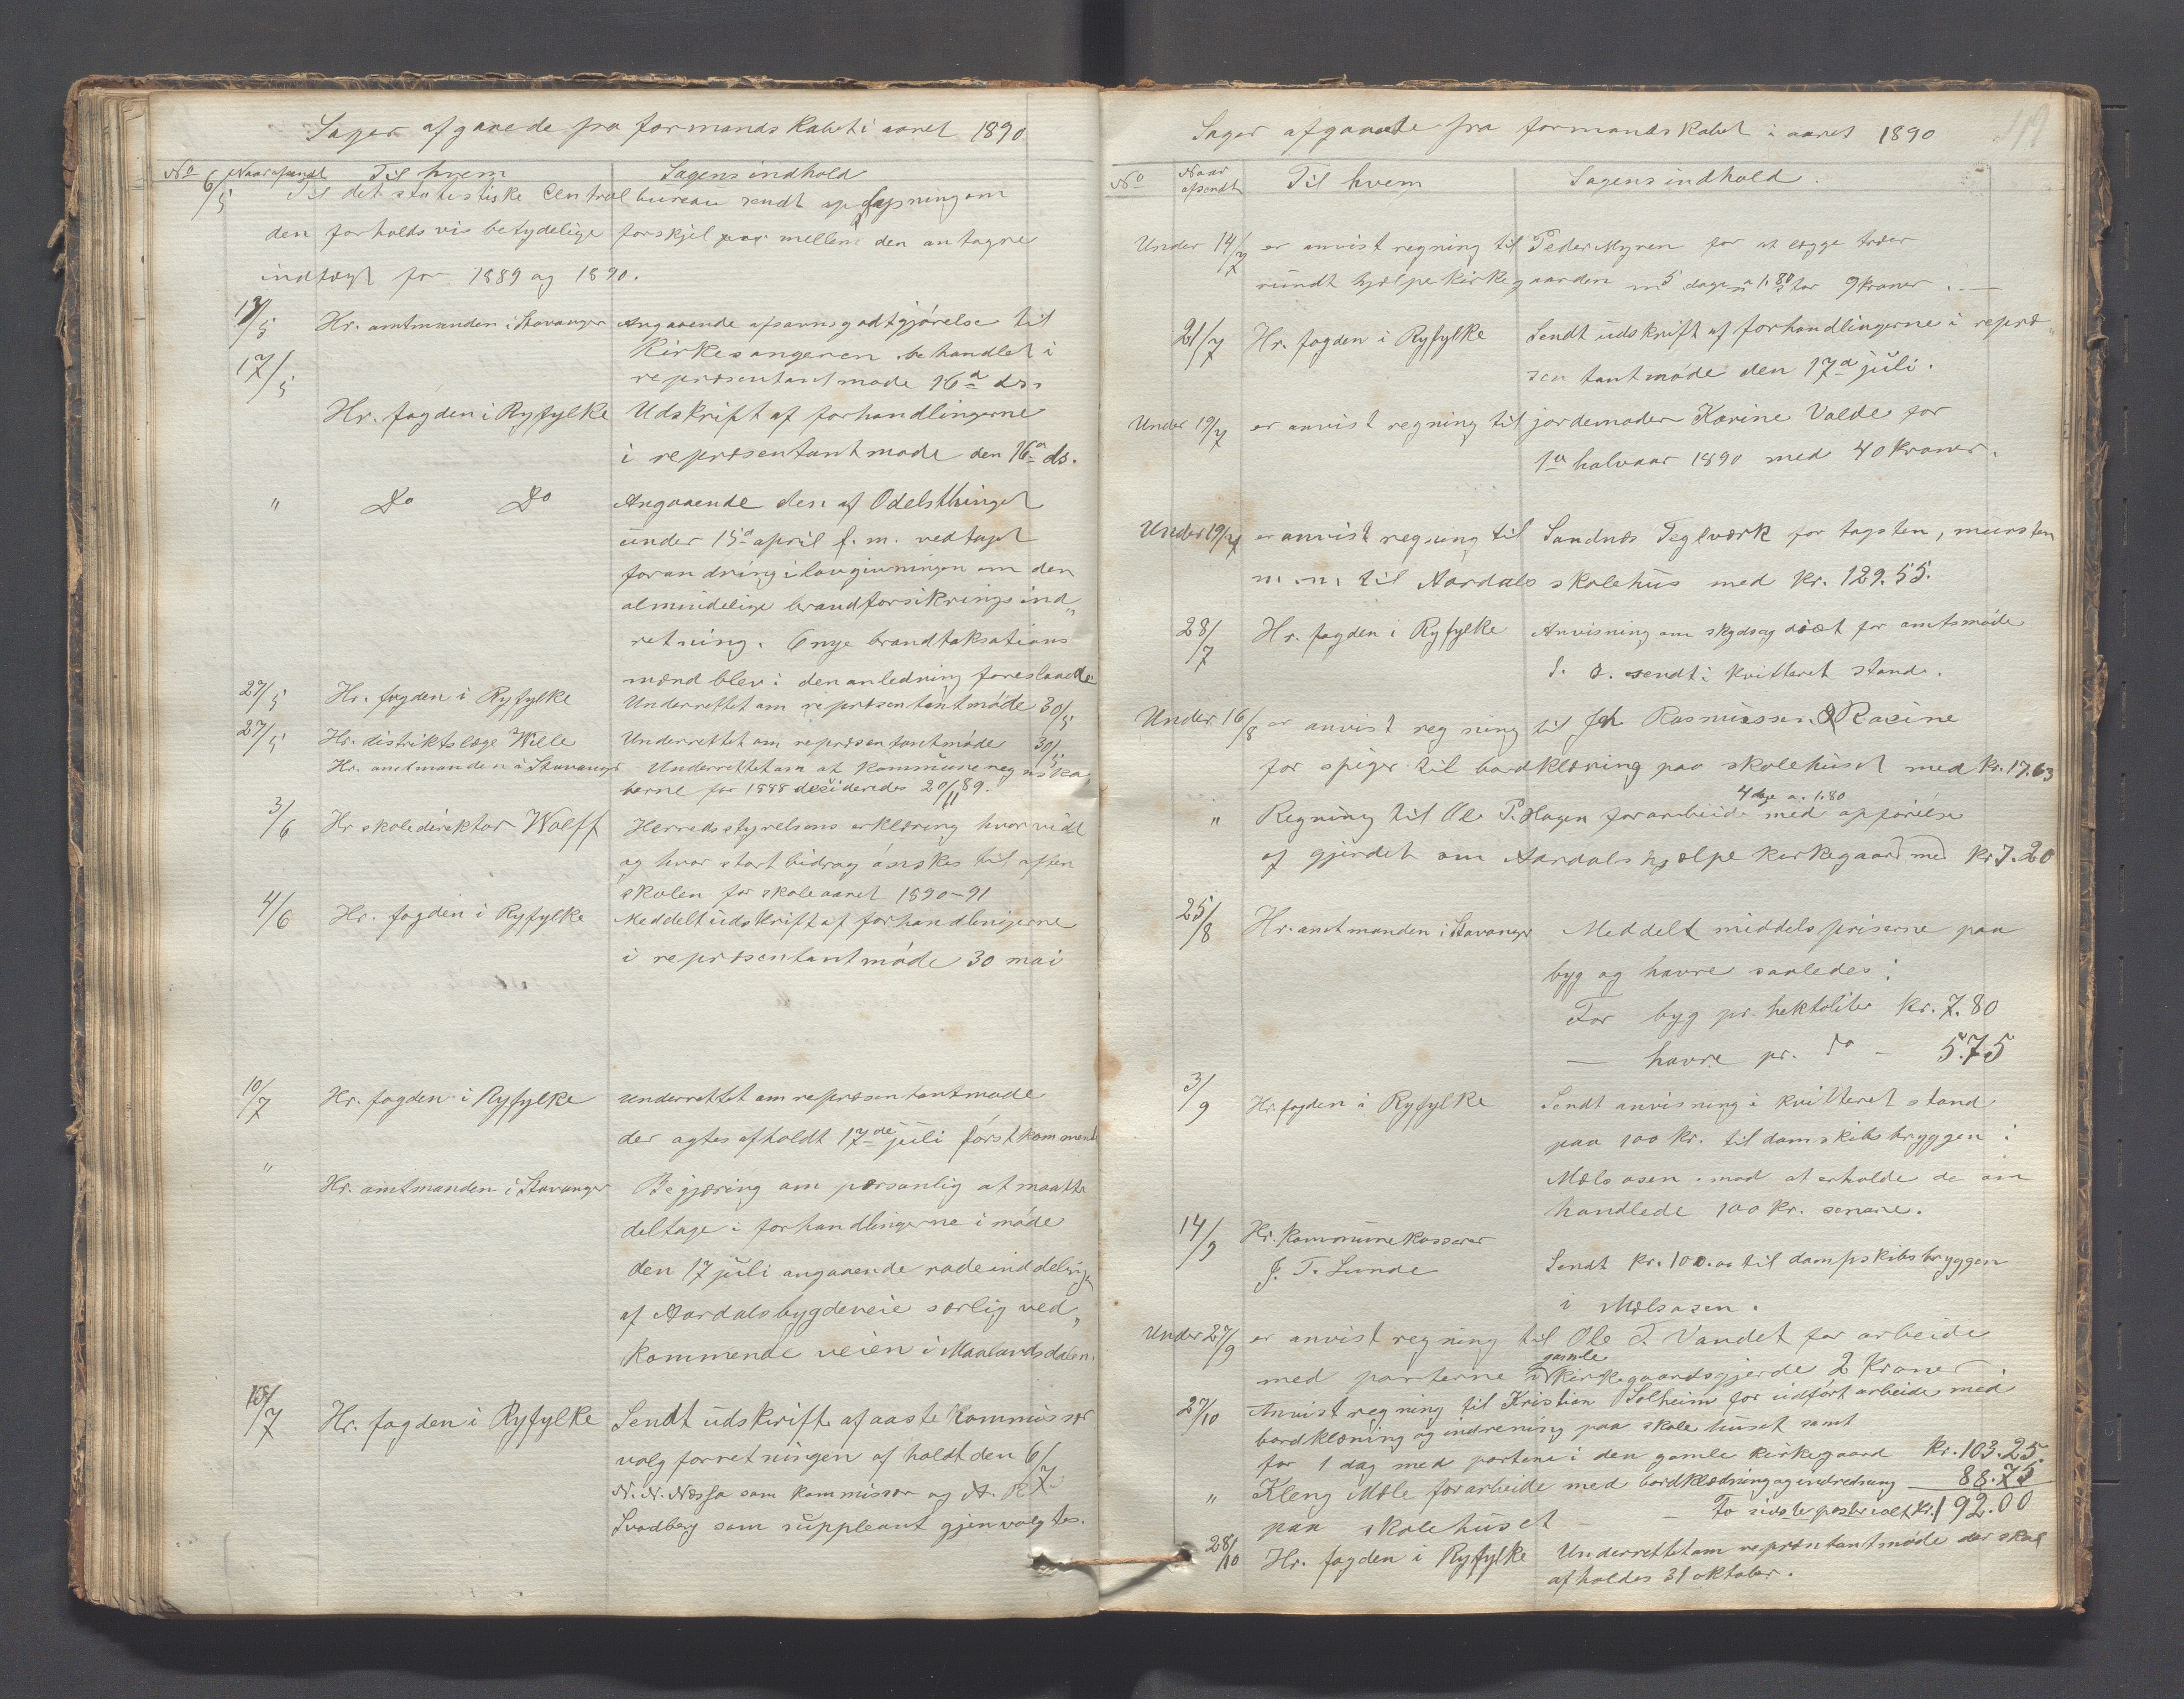 Sager afgaaede fra formandskabet i aaret 1890
No Naar afsendt Til hvem Sagens indhold
6/5 Til det statistiske Centralbureau sendt oplysning om
den forholdsvis betydelige forskjel mellem den antagne
indtægt for 1889 og 1890.
13/5 Hr. amtmanden i Stavanger Angaaende afsavnsgodtgjörelse til
Kirkesangeren behandlet i
repræsentantmøde 16de ds.
17/5
Hr. fogden i Ryfylke Udskrift af forhandlingerne
i repræsentantmøde den 16de ds.
" Do Do Angaaende den af Odelsthinget
under 15de april f. m. vedtagt
forandring i lovgivningen om den
almindelige brandforsikringsind„
retning. 6 nye brandtaksations
mænd blev i den anledning foreslaaede
27/5 Hr. fogden i Ryfylke Underrettet om repræsentantmöde 30/5
27/5 Hr. distriktslæge Wille Underrettet om repræsentantmöde 30/5
Hr. amtmanden i Stavanger Underrettet om at kommuneregnska„
berne for 1888 decideredes 20/11 89.
3/6 Hr skoledirektør Wolff Herredsstyrelsens erklæring hvorvidt
og hvor stort bidrag önskes til aften
skolen for skoleaaret 1890-91
4/6 Hr. fogden i Ryfylke Meddelt udskrift af forhandlingerne
i repræsentantmöde 30 mai
10/7 Hr. fogden i Ryfylke underrettet om repræsentantmøde
der agtes afholdt 17de juli förstkommend
" Hr. amtmanden i Stavanger Begjæring om personlig at maatte
deltage i forhandlingerne i möde
den 17 juli angaaende rodeinddelingen
af Aardals bygdeveie særlig ved„
kommende veien i Maalandsdalen.
18/7 Hr. fogden i Ryfylke Sendt udskrift af aaste kommissær
valgforretningen afholdt den 6/7
N. N. Næssa som kommissær og A. R
Svadberg som suppleant gjenvalgtes.
Sager afgaaede fra formandskabet i aaret 1890
No Naar afsendt Til hvem Sagens indhold.
Under 14/7 er anvist regning til Peder Myren for at lægge træer
rundt hjælpekirkegaarden 5 dage a 1.80 9 kroner.
21/7 Hr. fogden i Ryfylke Sendt udskrift af forhandlingerne i repræ„
sentantmöde den 17de juli.
Under 19/7 er anvist regning til jordemoder Karine Valde for
1ste halvaar 1890 med 40 kroner.
Under 19/7 er anvist regning til Sandnes Teglværk for tagsten, mursten
m. m. til Aardals skolehus med kr. 129.55.
28/7 Hr. fogden i Ryfylke Anvisning om skyds og diæt for amtsmöde
sendt i kvitteret stand.
Under 16/8 er anvist regning til Joh Rasmussen & Racine
for spiger til bordklæning paa skolehuset med kr. 17.63
4 dage a. 1.80
" Regning til Ole P. Hagen for arbeide med opförelse
af gjerdet om Aardals hjælpekirkegaard med kr 7.20
25/8 Hr. amtmanden i Stavanger Meddelt middelspriserne paa
byg og havre saaledes:
For byg pr. hektoliter kr. 7.80
— havre pr. do - 5.75
3/9 Hr. fogden i Ryfylke Sendt anvisning i kvitteret stand
paa 100 kr. til damskibsbryggen i
Mælsosen mod at erholde de om
handlede 100 kr. senere.
14/9 Hr. Kommunekasserer
J. T. Lunde Sendt kr. 100.00 til dampskibsbryggen
i Mælsosen.
Under 27/9 er anvist regning til Ole T. Vandet for arbeide
med porterne i gamle kirkegaardsgjerde 2 kroner
27/10 Anvist regning til Kristian Solheim for udfört arbeide med
bordklæning og indrening paa skolehuset samt
for 1 dag med portene i den gamle kirkegaard kr. 103.25
" Kleng Mæle for arbeide med bordklædning og indredning 88.75
paa skolehuset — To sidste poster ialt kr. 192.00
28/10 Hr. fogden i Ryfylke Underrettet om repræsentantmöde der skal
afholdes 31 oktober.